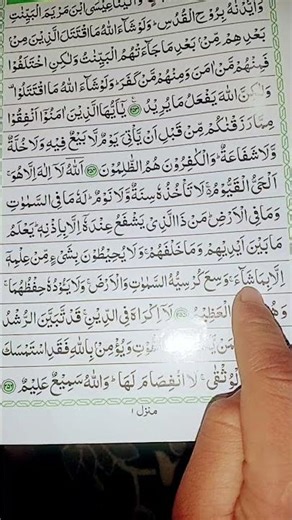 وَاَيَّدْنٰهُ بِرُوْحِ الْقُدُسِ ؕ وَلَوْ شَآءَ اللّٰهُ مَا اقْتَتَلَ الَّذِيْنَ مِنْۢ
بَعْدِهِمْ مِّنْۢ بَعْدِ مَا جَآءَتْهُمُ الْبَيِّنٰتُ وَلٰكِنِ اخْتَلَفُوْا
فَمِنْهُمْ مَّنْ اٰمَنَ وَمِنْهُمْ مَّنْ كَفَرَ ؕ وَلَوْ شَآءَ اللّٰهُ مَا اقْتَتَلُوْا ۟
وَلٰكِنَّ اللّٰهَ يَفْعَلُ مَا يُرِيْدُ ۟ يٰۤاَيُّهَا الَّذِيْنَ اٰمَنُوْۤا اَنْفِقُوْا
مِمَّا رَزَقْنٰكُمْ مِّنْ قَبْلِ اَنْ يَّاْتِيَ يَوْمٌ لَّا بَيْعٌ فِيْهِ وَلَا خُلَّةٌ
وَّلَا شَفَاعَةٌ ؕ وَالْكٰفِرُوْنَ هُمُ الظّٰلِمُوْنَ ۟ اَللّٰهُ لَاۤ اِلٰهَ اِلَّا هُوَ ۚ
اَلْحَيُّ الْقَيُّوْمُ ۚ لَا تَاْخُذُهٗ سِنَةٌ وَّلَا نَوْمٌ ؕ لَهٗ مَا فِي السَّمٰوٰتِ
وَمَا فِي الْاَرْضِ ؕ مَنْ ذَا الَّذِيْ يَشْفَعُ عِنْدَهٗۤ اِلَّا بِاِذْنِهٖ ؕ يَعْلَمُ
مَا بَيْنَ اَيْدِيْهِمْ وَمَا خَلْفَهُمْ ۚ وَلَا يُحِيْطُوْنَ بِشَيْءٍ مِّنْ عِلْمِهٖۤ
اِلَّا بِمَا شَآءَ ۚ وَسِعَ كُرْسِيُّهُ السَّمٰوٰتِ وَالْاَرْضَ ۚ وَلَا يَـُٔوْدُهٗ حِفْظُهُمَا ۚ
وَهُوَ الْعَظِيْمُ ۟ لَاۤ اِكْرَاهَ فِي الدِّيْنِ ۙ قَدْ تَّبَيَّنَ الرُّشْدُ
وَيُؤْمِنْۢ بِاللّٰهِ فَقَدِ اسْتَمْسَكَ
لَا انْفِصَامَ لَهَا ؕ وَاللّٰهُ سَمِيْعٌ عَلِيْمٌ ۟
منزل ١